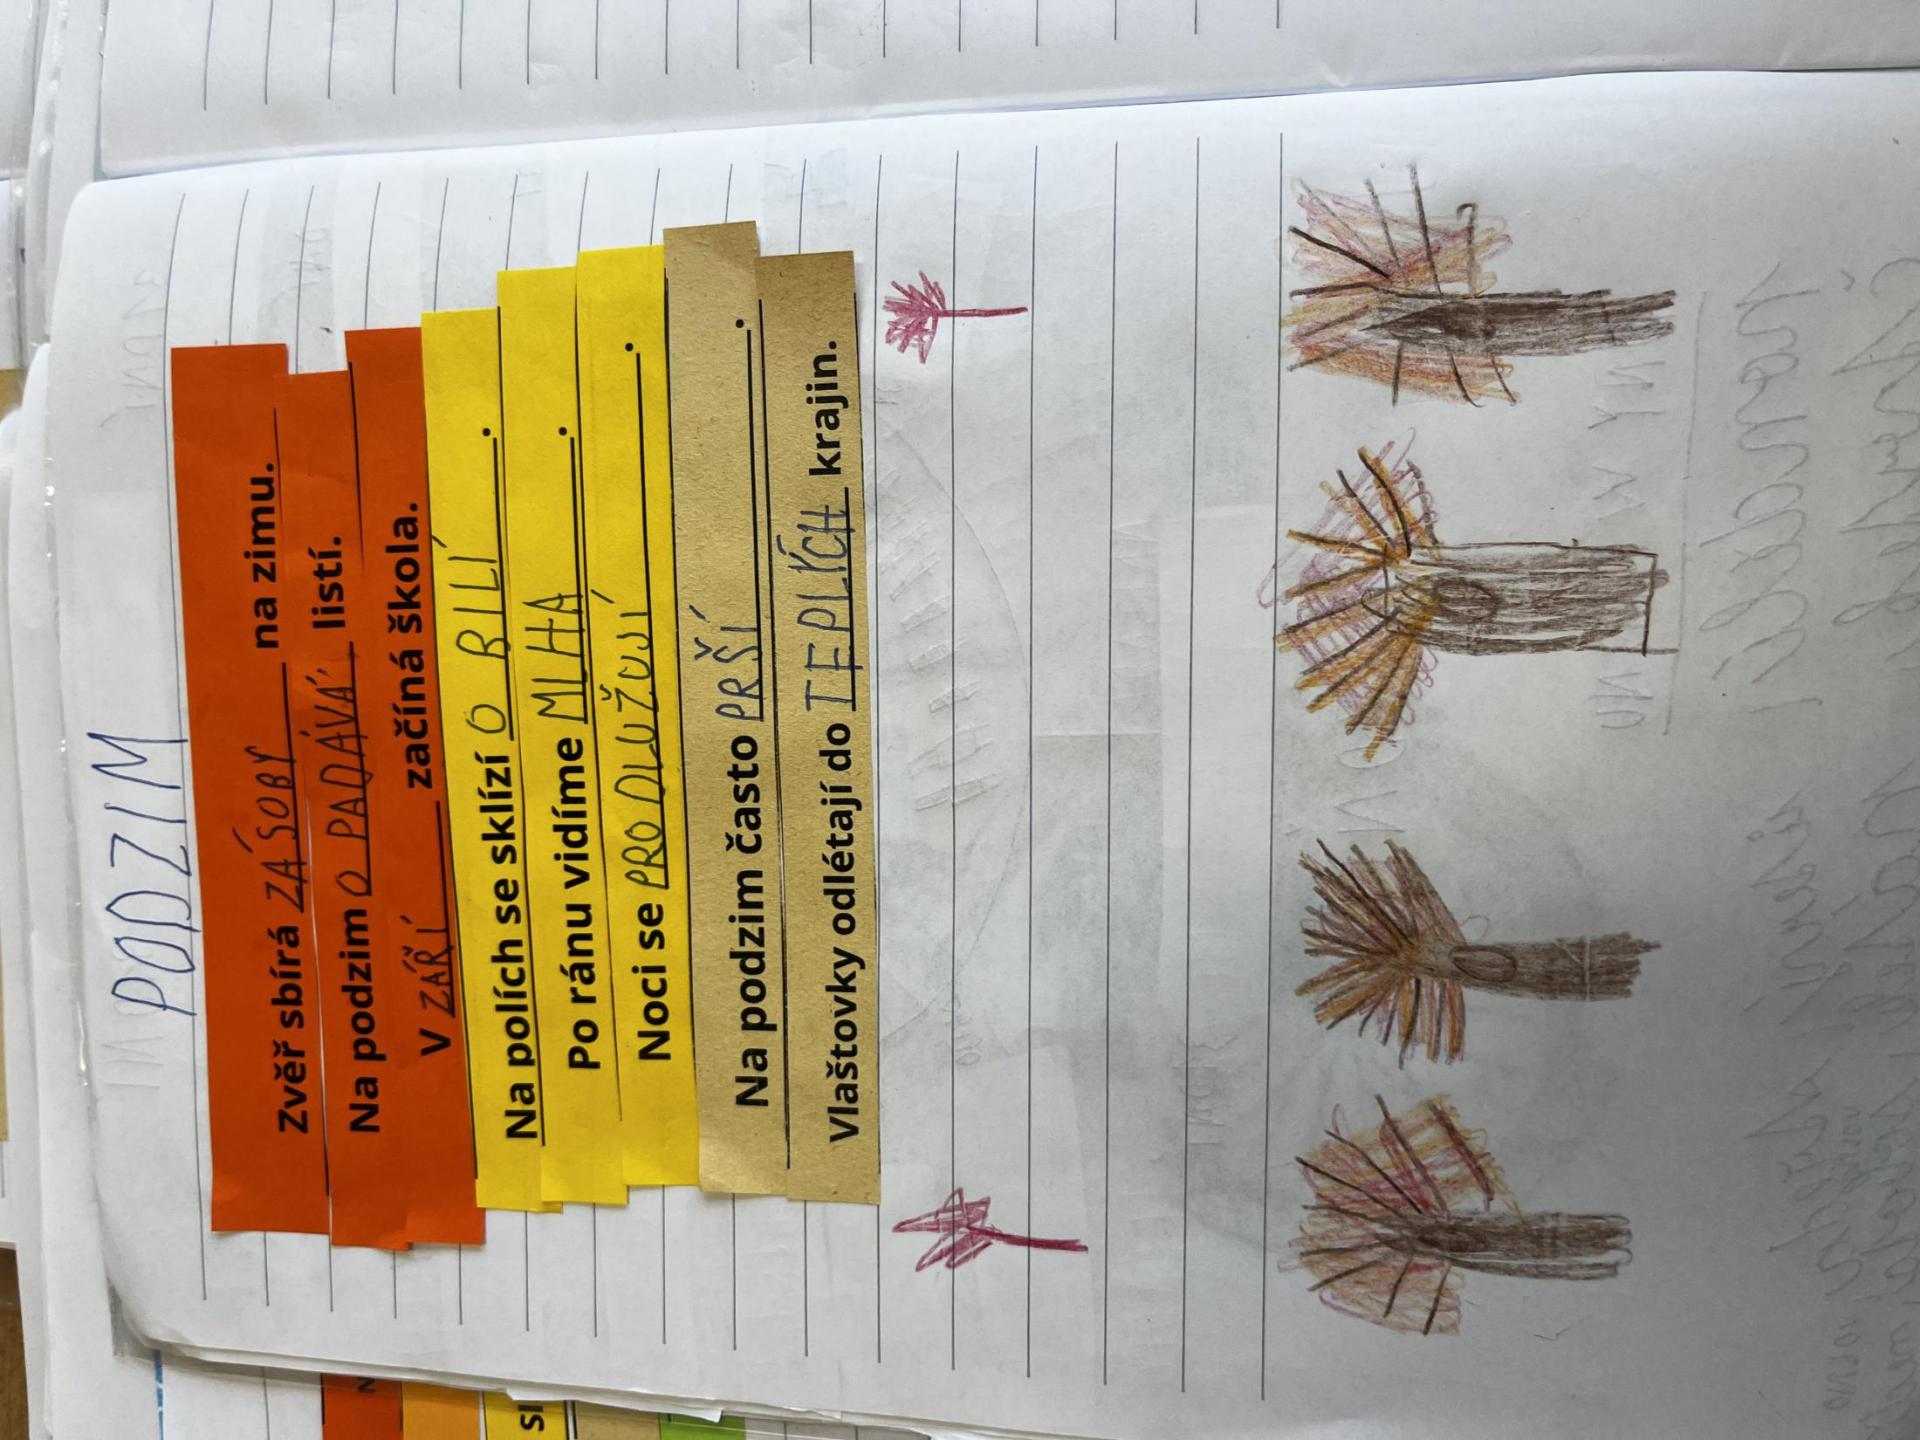 PODZIM
Zvěř sbírá ZÁSOBY na zimu.
Na podzim O PADÁVÁ listí.
V ZÁŘÍ začíná škola.
Na polích se sklízí O BILÍ.
Po ránu vidíme MLHA.
Noci se PRODLUŽUJÍ.
Na podzim často PRŠÍ.
Vlaštovky odlétají do TEPLÝCH krajin.